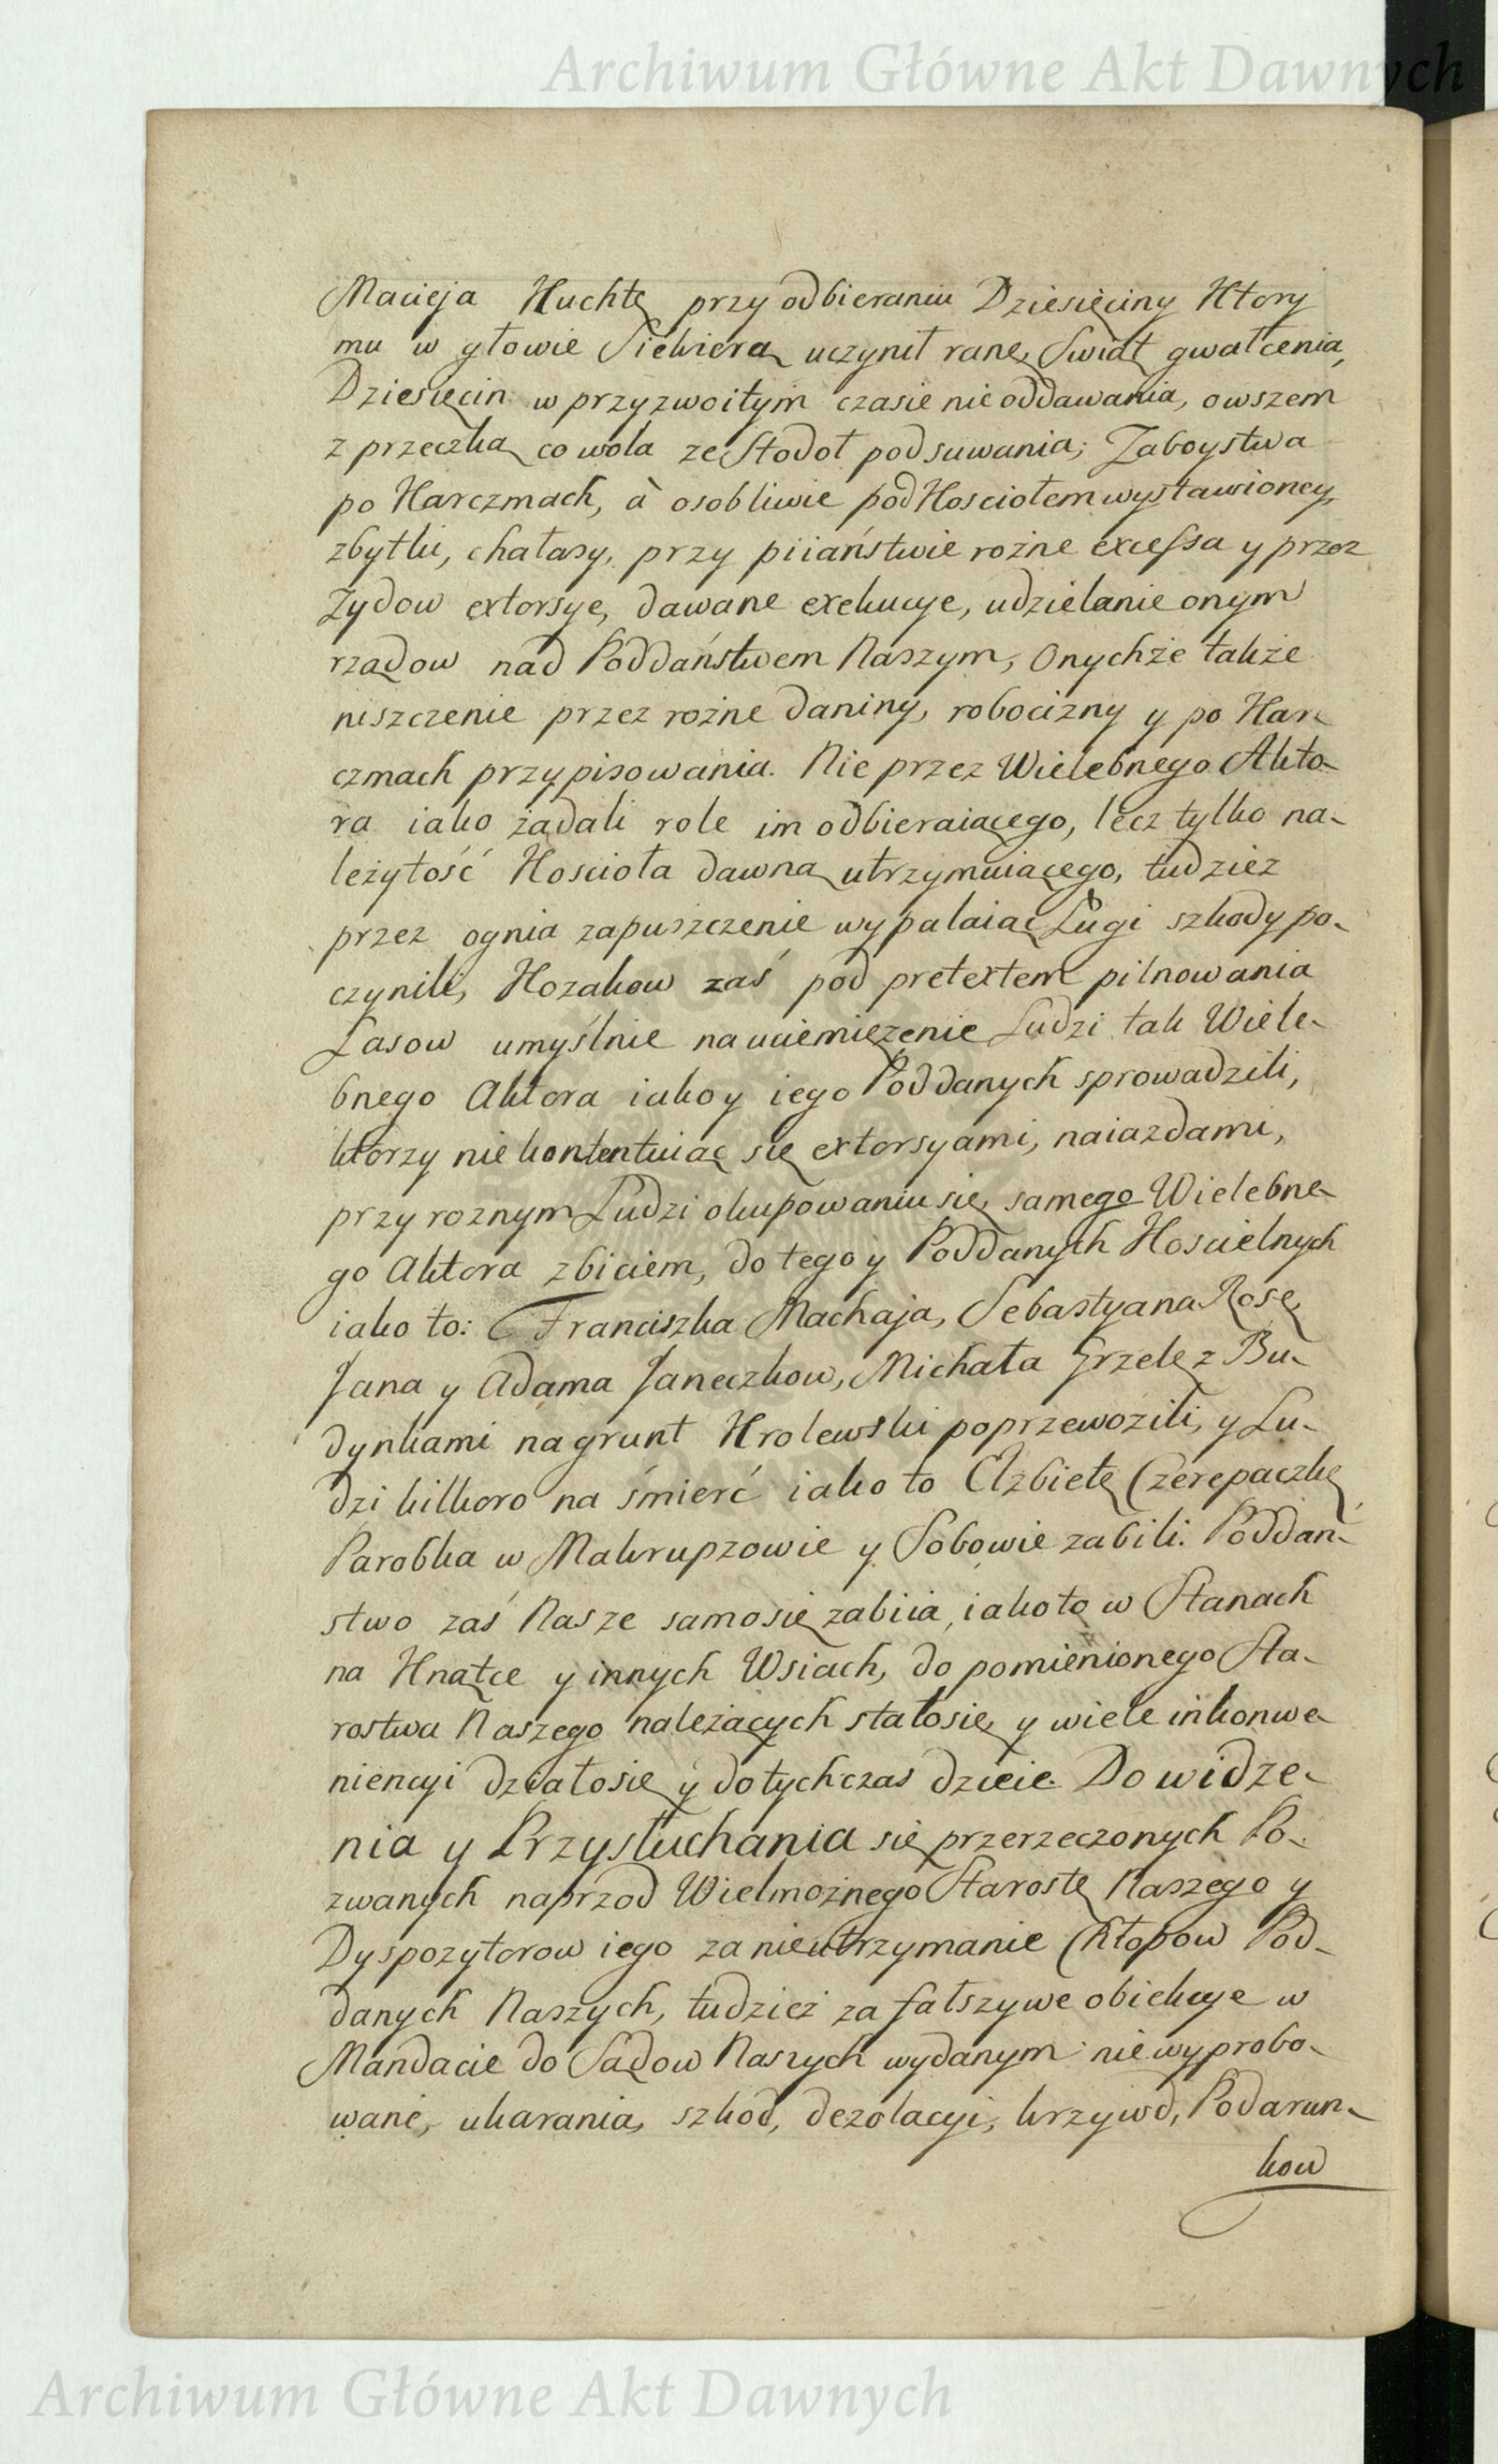 Archiwum Główne Akt Dawnych
Macieja Kuchtę przy odbieraniu Dziesięciny Ktory
mu w głowie Siekierą uczynił ranę, Swiąt gwałcenia,
Dziesięcin w przyzwoitym czasie nie oddawania, owszem
z przeczką co wola ze Stodoł podsuwania; Zaboystwa
po Karczmach, à osobliwie pod Kosciołem wystawioney,
zbytki, chałasy, przy piiaństwie rożne excessa y przez
Zydow extorsye, dawane exekucye, udzielanie onym
rządow nad Poddaństwem Naszym, Onychże także
niszczenie przez rożne daniny, robocizny y po Kar-
czmach przypisowania. Nie przez Wielebnego Akto-
ra iako żądali role im odbieraiącego, lecz tylko na-
leżytość Koscioła dawną utrzymuiącego, tudziez
przez ognia zapuszczenie wypalaiąc Ługi szkody po-
czynili, Kozakow zaś pod pretextem pilnowania
Lasow umyślnie na uciemiężenie Ludzi tak Wiele-
bnego Aktora iako y iego Poddanych sprowadzili,
ktorzy nie kontentuiąc się extorsyami, naiazdami,
przy roznym Ludzi okupowaniu się, samego Wielebne-
go Aktora zbiciem, do tego y Poddanych Koscielnych
iako to: Franciszka Machaja, Sebastyana Rosę,
Jana y Adama Janeczkow, Michała Grzelę z Bu-
dynkami na grunt Krolewski poprzewozili, y Lu-
dzi kilkoro na śmierć iako to Elzbietę Czerepaczkę
Parobka w Makrupzowie y Sobowie zabili. Poddan-
stwo zaś Nasze samo się zabiia, iako to w Stanach
na Knatce y innych Wsiach, do pomienionego Sta-
rostwa Naszego należących stało się, y wiele inkonwe-
niencyi działo się y dotychczas dzieie. Do widze-
nia y Przysłuchania się przerzeczonych Po-
zwanych naprzod Wielmożnego Starostę Naszego y
Dyspozytorow iego za nieutrzymanie Chłopow Pod-
danych Naszych, tudzież za fałszywe obiekcye w
Mandacie do Sądow Naszych wydanym niewyprobo-
wane, ukarania, szkod, dezolacyi, krzywd, Podarun-
kow
Archiwum Główne Akt Dawnych